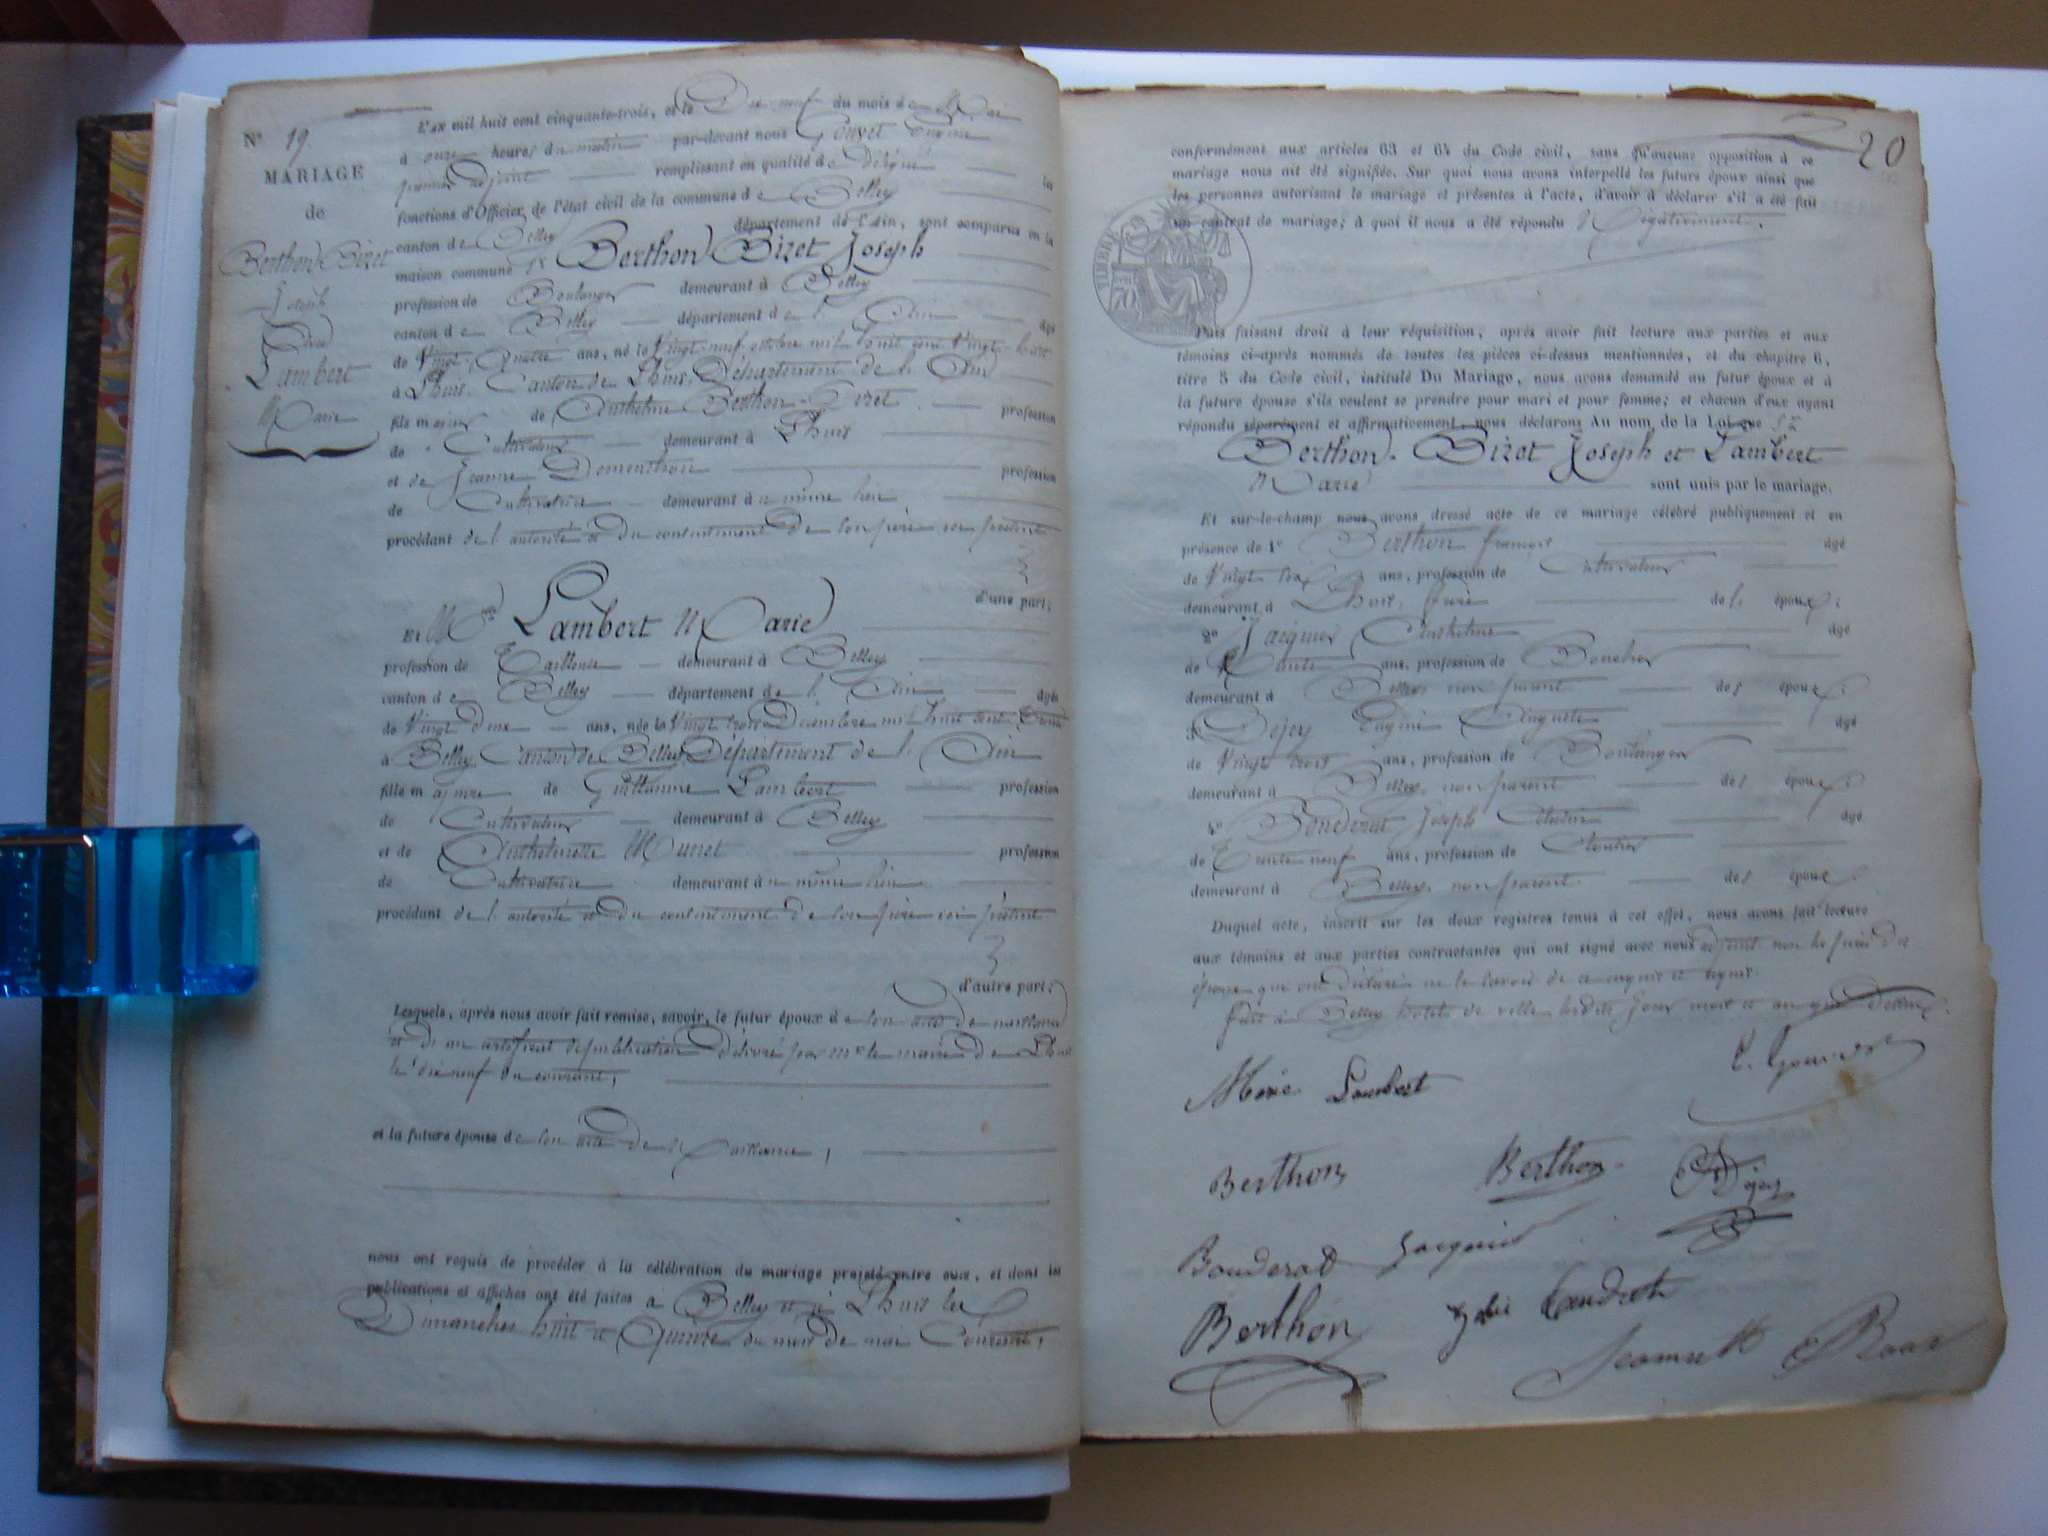 N° 19.
MARIAGE
de
Berthon Bizet
Joseph
et
Lambert
Marie
L'AN mil huit cent cinquante-trois, et le Dix neuf du mois de Mai
à onze heures du matin par-devant nous
premier adjoint remplissant en qualité de Délégué les
fonctions d'Officier de l'état civil de la commune de Belley
canton de Belley département de l'Ain, sont comparus en la
maison commune Sr Berthon Bizet Joseph
profession de Boulanger demeurant à Belley
canton de Belley département de l'Ain âgé
de Vingt-Quatre ans, né le Vingt neuf octobre mil huit cent Vingt-huit
à Lhuis, Canton de Lhuis, Département de l'Ain
fils majeur de Anthelme Berthon-Bizet profession
de Cultivateur demeurant à Lhuis
et de Jeanne Dementhon profession
de Cultivatrice demeurant à même lieu
procédant de l'autorité et du consentement de son père ici présent
d'une part;
Et Mlle Lambert Marie
profession de Tailleuse demeurant à Belley
canton de Belley département de l'Ain âgée
de Vingt deux ans, née le Vingt trois Décembre mil huit cent Trente
à Belley, Canton de Belley, Département de l'Ain
fille majeure de Guillaume Lambert profession
de Cultivateur demeurant à Belley
et de Anthelmette Munet profession
de Cultivatrice demeurant à même lieu
procédant de l'autorité et du consentement de son père ici présent
d'autre part;
Lesquels, après nous avoir fait remise, savoir, le futur époux de son acte de naissance
et d'un certificat de publication délivré par Mr le maire de Lhuis
le dix neuf du courant,
et la future épouse de son acte de Naissance,
nous ont requis de procéder à la célébration du mariage projeté entre eux, et dont les
publications et affiches ont été faites à Belley et à Lhuis les
Dimanches huit et Quinze du mois de mai Courant,
20
conformément aux articles 63 et 64 du Code civil, sans qu'aucune opposition à ce
mariage nous ait été signifiée. Sur quoi nous avons interpellé les futurs époux ainsi que
les personnes autorisant le mariage et présentes à l'acte, d'avoir à déclarer s'il a été fait
un contrat de mariage; à quoi il nous a été répondu Négativement.
TIMBRE
70
Puis faisant droit à leur réquisition, après avoir fait lecture aux parties et aux
témoins ci-après nommés de toutes les pièces ci-dessus mentionnées, et du chapitre 6,
titre 5 du Code civil, intitulé Du Mariage, nous avons demandé au futur époux et à
la future épouse s'ils veulent se prendre pour mari et pour femme; et chacun d'eux ayant
répondu séparément et affirmativement, nous déclarons Au nom de la Loi que Sr
Berthon-Bizet Joseph et Lambert
Marie sont unis par le mariage.
Et sur-le-champ nous avons dressé acte de ce mariage célébré publiquement et en
présence de 1° Berthon françois âgé
de Vingt six ans, profession de Cultivateur
demeurant à Lhuis, frère de l'époux;
2° Jacquier Anthelme âgé
de Trente ans, profession de Boucher
demeurant à Belley non parent des époux;
3° Dejey Eugène Auguste âgé
de Vingt trois ans, profession de Boulanger
demeurant à Belley, non parent des époux;
4° Bouderat Joseph âgé
de Trente neuf ans, profession de
demeurant à Belley, non parent des époux;
Duquel acte, inscrit sur les deux registres tenus à cet effet, nous avons fait lecture
aux témoins et aux parties contractantes qui ont signé avec nous adjoint non les pères des
époux qui ont déclaré ne le savoir de ce enquis et requis.
Fait à Belley hôtel de ville lesdits jour mois et an que dessus.
Marie Lambert
Berthon Berthon Dejey
Bouderat Jacquier
Berthon